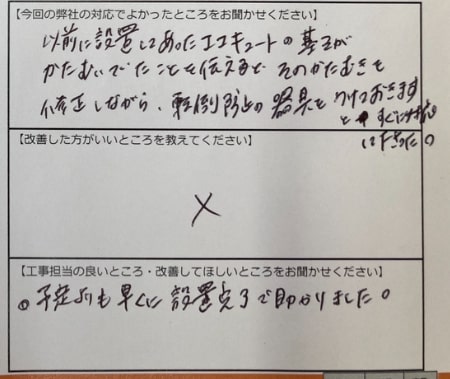 【今回の弊社の対応でよかったところをお聞かせください】
以前に設置してあったエコキュートの基礎が
かたむいてたことを伝えると そのかたむきも
修正しながら、転倒防止の器具もつけておきます
と すぐに
下さった。
【改善した方がいいところを教えてください】
×
【工事担当の良いところ・改善してほしいところをお聞かせください】
◎予定よりも早くに設置完了で助かりました。